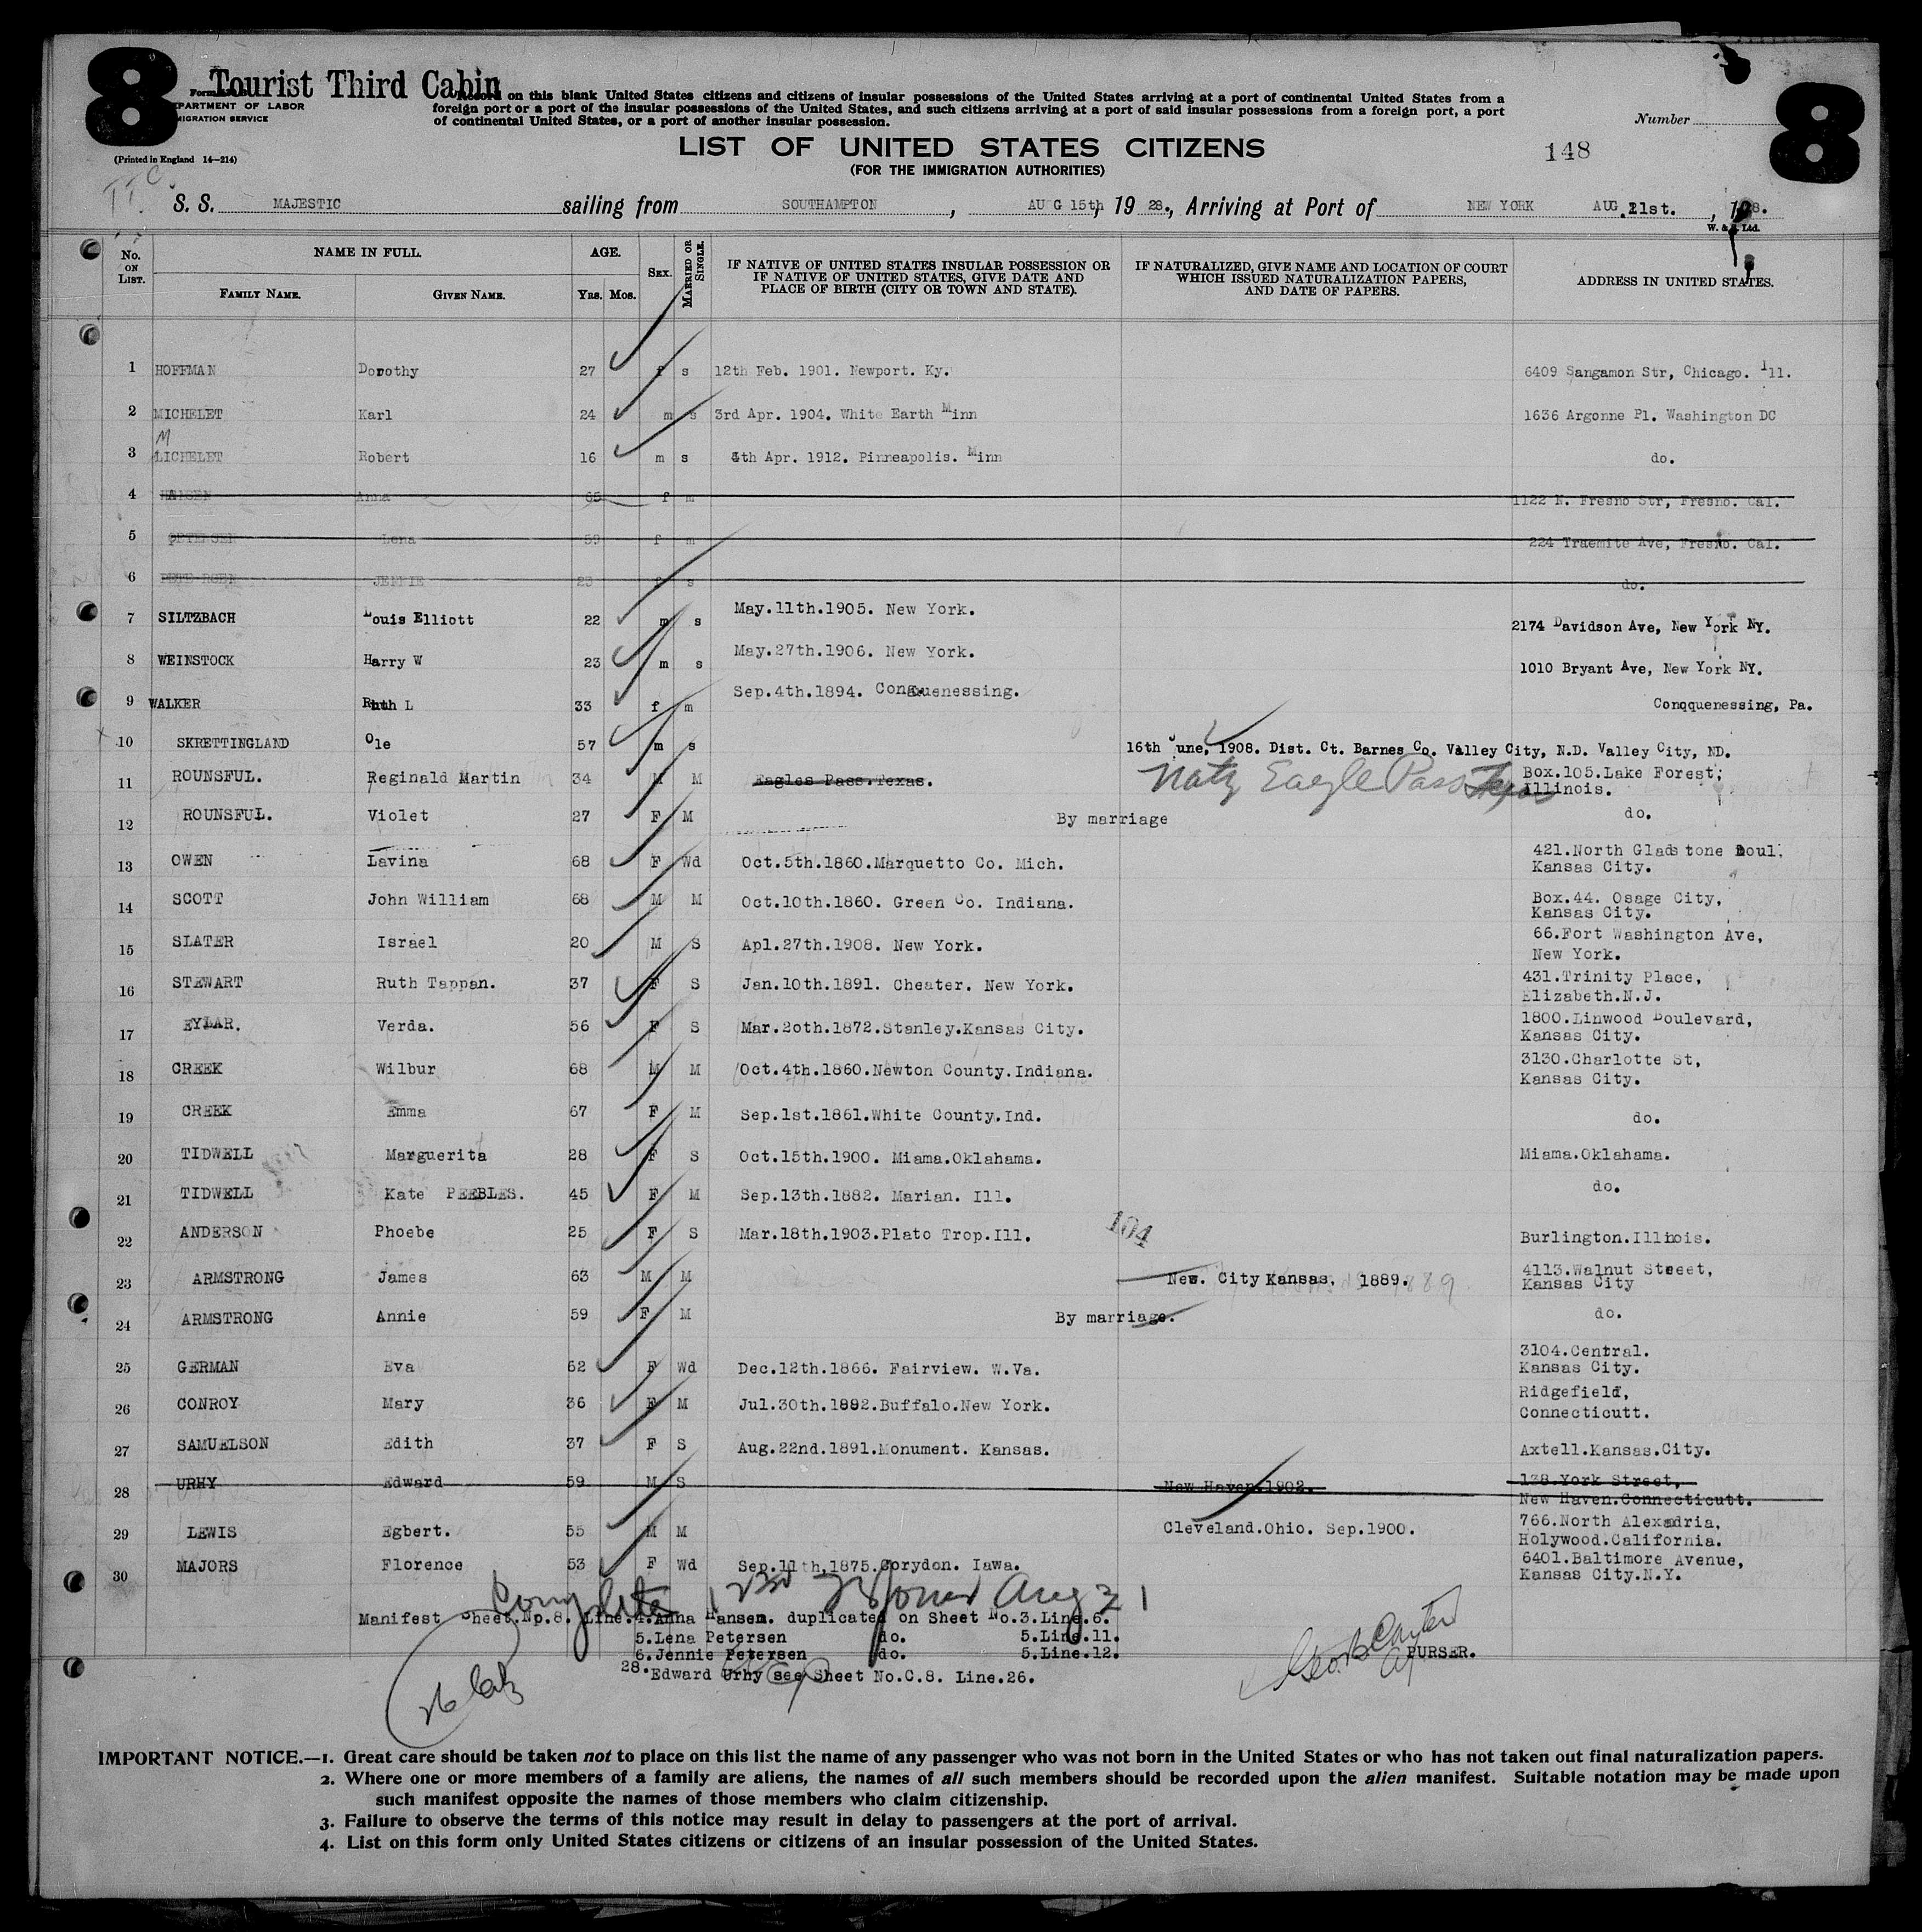 8 Tourist Third Cabin 8
Form
DEPARTMENT OF LABOR
IMMIGRATION SERVICE
(Printed in England 14—214)
Record on this blank United States citizens and citizens of insular possessions of the United States arriving at a port of continental United States from a
foreign port or a port of the insular possessions of the United States, and such citizens arriving at a port of said insular possessions from a foreign port, a port
of continental United States, or a port of another insular possession.
Number
LIST OF UNITED STATES CITIZENS
148
(FOR THE IMMIGRATION AUTHORITIES)
T.T.C.
S. S. MAJESTIC sailing from SOUTHAMPTON, AUG 15th, 1928., Arriving at Port of NEW YORK AUG 21st., 1928.
W. & S. Ltd.
No. ON LIST. NAME IN FULL. AGE. SEX. MARRIED OR SINGLE. IF NATIVE OF UNITED STATES INSULAR POSSESSION OR IF NATIVE OF UNITED STATES, GIVE DATE AND PLACE OF BIRTH (CITY OR TOWN AND STATE). IF NATURALIZED, GIVE NAME AND LOCATION OF COURT WHICH ISSUED NATURALIZATION PAPERS, AND DATE OF PAPERS. ADDRESS IN UNITED STATES.
FAMILY NAME. GIVEN NAME. YRS. MOS.
1 HOFFMAN Dorothy 27 f s 12th Feb. 1901. Newport. Ky. 6409 Sangamon Str, Chicago. Ill.
2 MICHELET Karl 24 m s 3rd Apr. 1904. White Earth Minn 1636 Argonne Pl. Washington DC
M
3 LICHELET Robert 16 m s 4th Apr. 1912. Pinneapolis. Minn do.
4 HANSEN Anna 65 f m 1122 N. Fresno Str, Fresno. Cal.
5 PETERSEN Lena 59 f m 224 Traemite Ave, Fresno. Cal.
6 JENNIE 23 f s do.
7 SILTZBACH Louis Elliott 22 m s May.11th.1905. New York. 2174 Davidson Ave, New York NY.
8 WEINSTOCK Harry W 23 m s May.27th.1906. New York. 1010 Bryant Ave, New York NY.
9 WALKER Ruth L 33 f m Sep.4th.1894. Conquenessing. Conqquenessing, Pa.
10 SKRETTINGLAND Ole 57 m s 16th June, 1908. Dist. Ct. Barnes Co. Valley City, N.D. Valley City, ND.
11 ROUNSFUL. Reginald Martin 34 M M Eagles Pass.Texas. Natz Eagle Pass Texas Box.105.Lake Forest,
Illinois.
12 ROUNSFUL. Violet 27 F M By marriage do.
13 OWEN Lavina 68 F Wd Oct.5th.1860.Marquetto Co. Mich. 421.North Gladstone Boul.
Kansas City.
14 SCOTT John William 68 M M Oct.10th.1860. Green Co. Indiana. Box.44. Osage City,
Kansas City.
15 SLATER Israel 20 M S Apl.27th.1908. New York. 66.Fort Washington Ave,
New York.
16 STEWART Ruth Tappan. 37 F S Jan.10th.1891. Cheater. New York. 431.Trinity Place,
Elizabeth.N.J.
17 EYLAR. Verda. 56 F S Mar.20th.1872.Stanley.Kansas City. 1800.Linwood Boulevard,
Kansas City.
18 CREEK Wilbur 68 M M Oct.4th.1860.Newton County.Indiana. 3130.Charlotte St,
Kansas City.
19 CREEK Emma 67 F M Sep.1st.1861.White County.Ind. do.
20 TIDWELL Marguerita 28 F S Oct.15th.1900. Miama.Oklahama. Miama.Oklahama.
21 TIDWELL Kate PEEBLES. 45 F M Sep.13th.1882. Marian. Ill. do.
22 ANDERSON Phoebe 25 F S Mar.18th.1903.Plato Trop.Ill. 104 Burlington.Illinois.
23 ARMSTRONG James 63 M M New. City Kansas, 1889. 4113.Walnut Street,
Kansas City
24 ARMSTRONG Annie 59 F M By marriage. do.
25 GERMAN Eva 62 F Wd Dec.12th.1866. Fairview. W.Va. 3104.Central.
Kansas City.
26 CONROY Mary 36 F M Jul.30th.1892.Buffalo.New York. Ridgefield,
Connecticutt.
27 SAMUELSON Edith 37 F S Aug.22nd.1891.Monument. Kansas. Axtell.Kansas.City.
28 URHY Edward 59 M S New Haven.1902. 138.York Street,
New Haven.Connecticutt.
29 LEWIS Egbert. 55 M M Cleveland.Ohio. Sep.1900. 766.North Alexadria,
Holywood.California.
30 MAJORS Florence 53 F Wd Sep.11th,1875.Corydon. Iawa. 6401.Baltimore Avenue,
Kansas City.N.Y.
Complete Aug 21
Manifest Sheet.No.8. Line.4.Anna Hansen. duplicated on Sheet No.3.Line.6.
5.Lena Petersen do. 5.Line.11.
6.Jennie Petersen do. 5.Line.12.
28.Edward Urhy see Sheet No.C.8. Line.26.
Geo. B. Carter
PURSER.
IMPORTANT NOTICE.—1. Great care should be taken not to place on this list the name of any passenger who was not born in the United States or who has not taken out final naturalization papers.
2. Where one or more members of a family are aliens, the names of all such members should be recorded upon the alien manifest. Suitable notation may be made upon
such manifest opposite the names of those members who claim citizenship.
3. Failure to observe the terms of this notice may result in delay to passengers at the port of arrival.
4. List on this form only United States citizens or citizens of an insular possession of the United States.